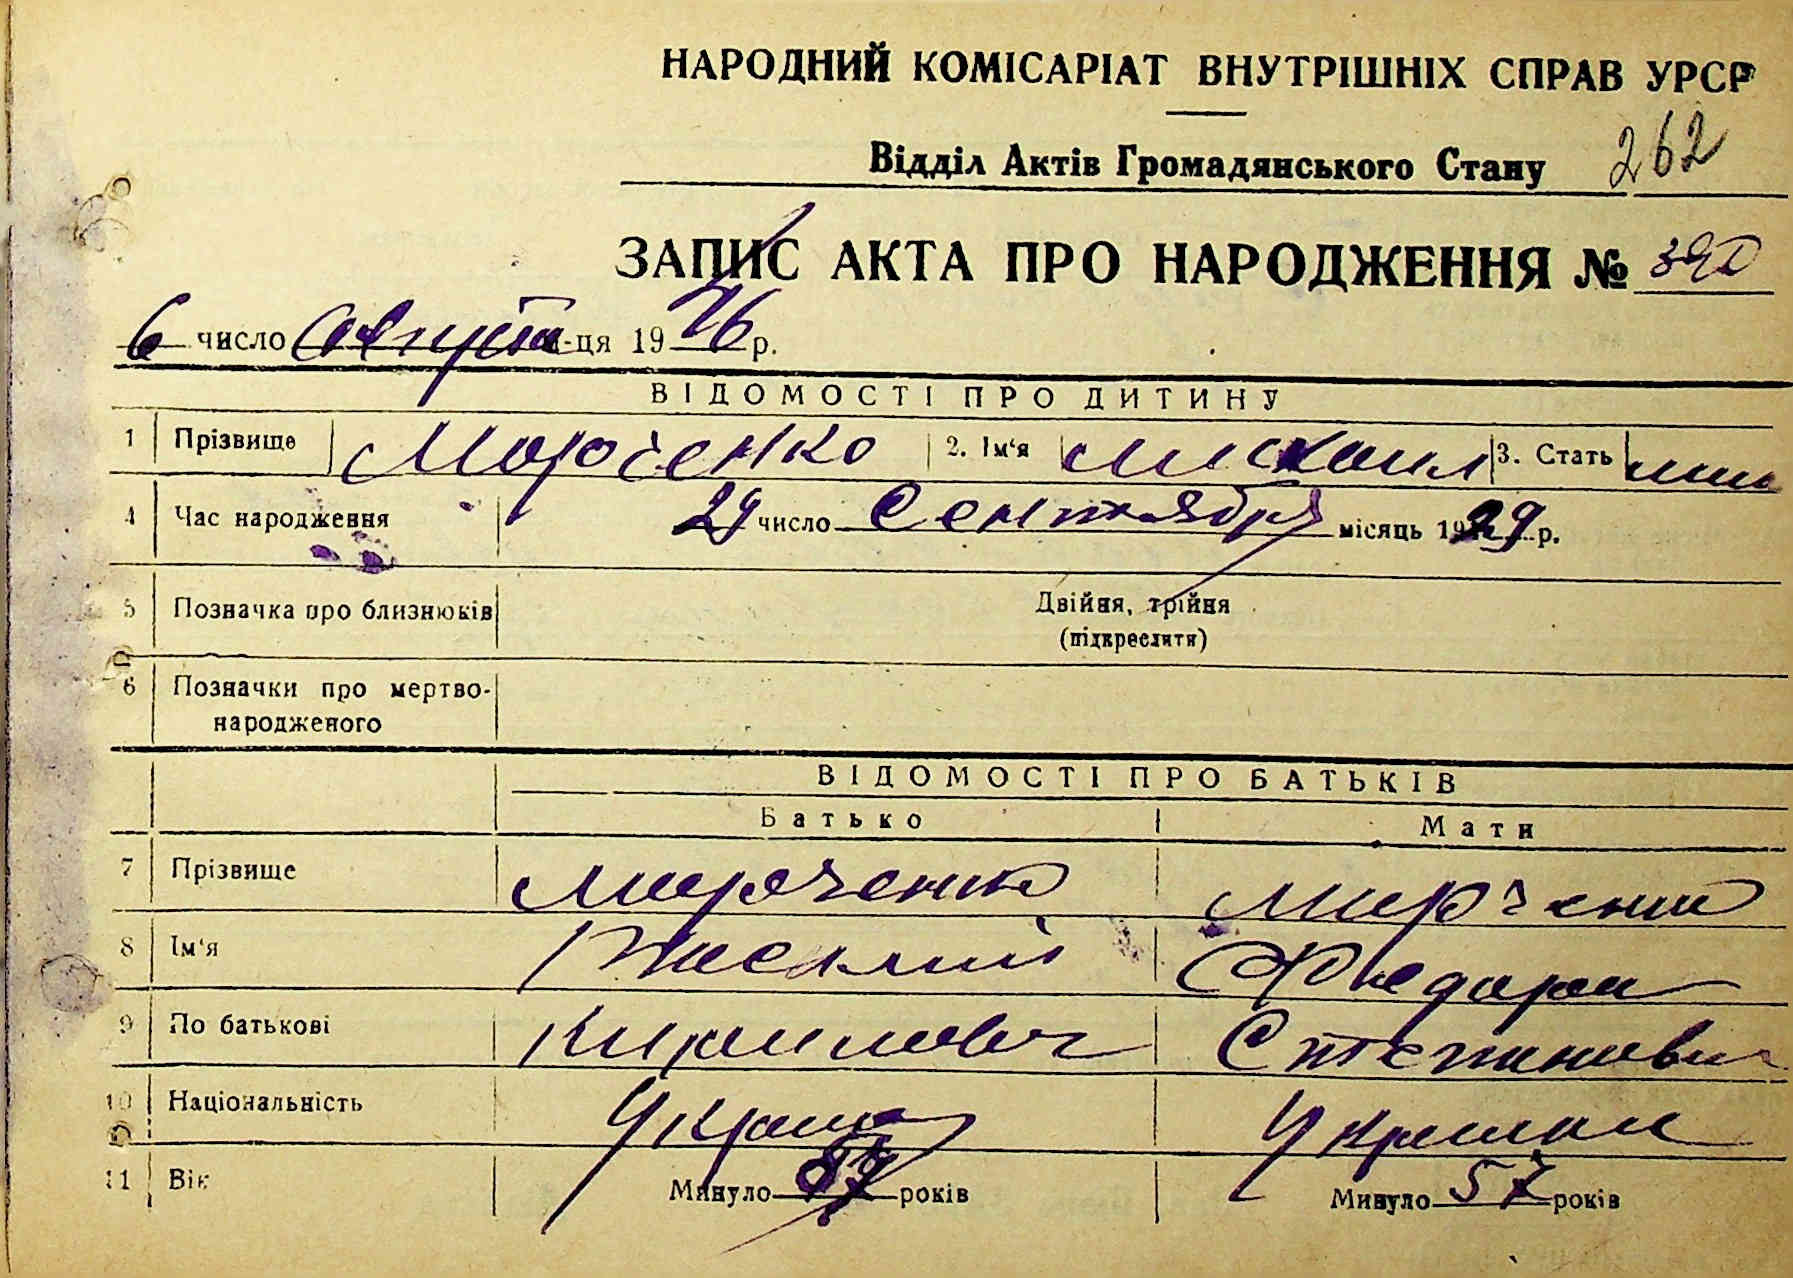 НАРОДНИЙ КОМІСАРІАТ ВНУТРІШНІХ СПРАВ УРСР
Відділ Актів Громадянського Стану 262
ЗАПИС АКТА ПРО НАРОДЖЕННЯ №
6 число Августа м-ця 1946 р.
ВІДОМОСТІ ПРО ДИТИНУ
1 Прізвище Марченко 2. Ім'я Михаил 3. Стать
4 Час народження 29 число Сентября місяць 1929 р.
5 Позначка про близнюків Двійня, трійня
(підкреслити)
6 Позначки про мертво-
народженого
ВІДОМОСТІ ПРО БАТЬКІВ
Батько Мати
7 Прізвище Марченко Марченко
8 Ім'я Василий Федора
9 По батькові Кирилович Степановна
10 Національність
11 Вік Минуло років Минуло 57 років